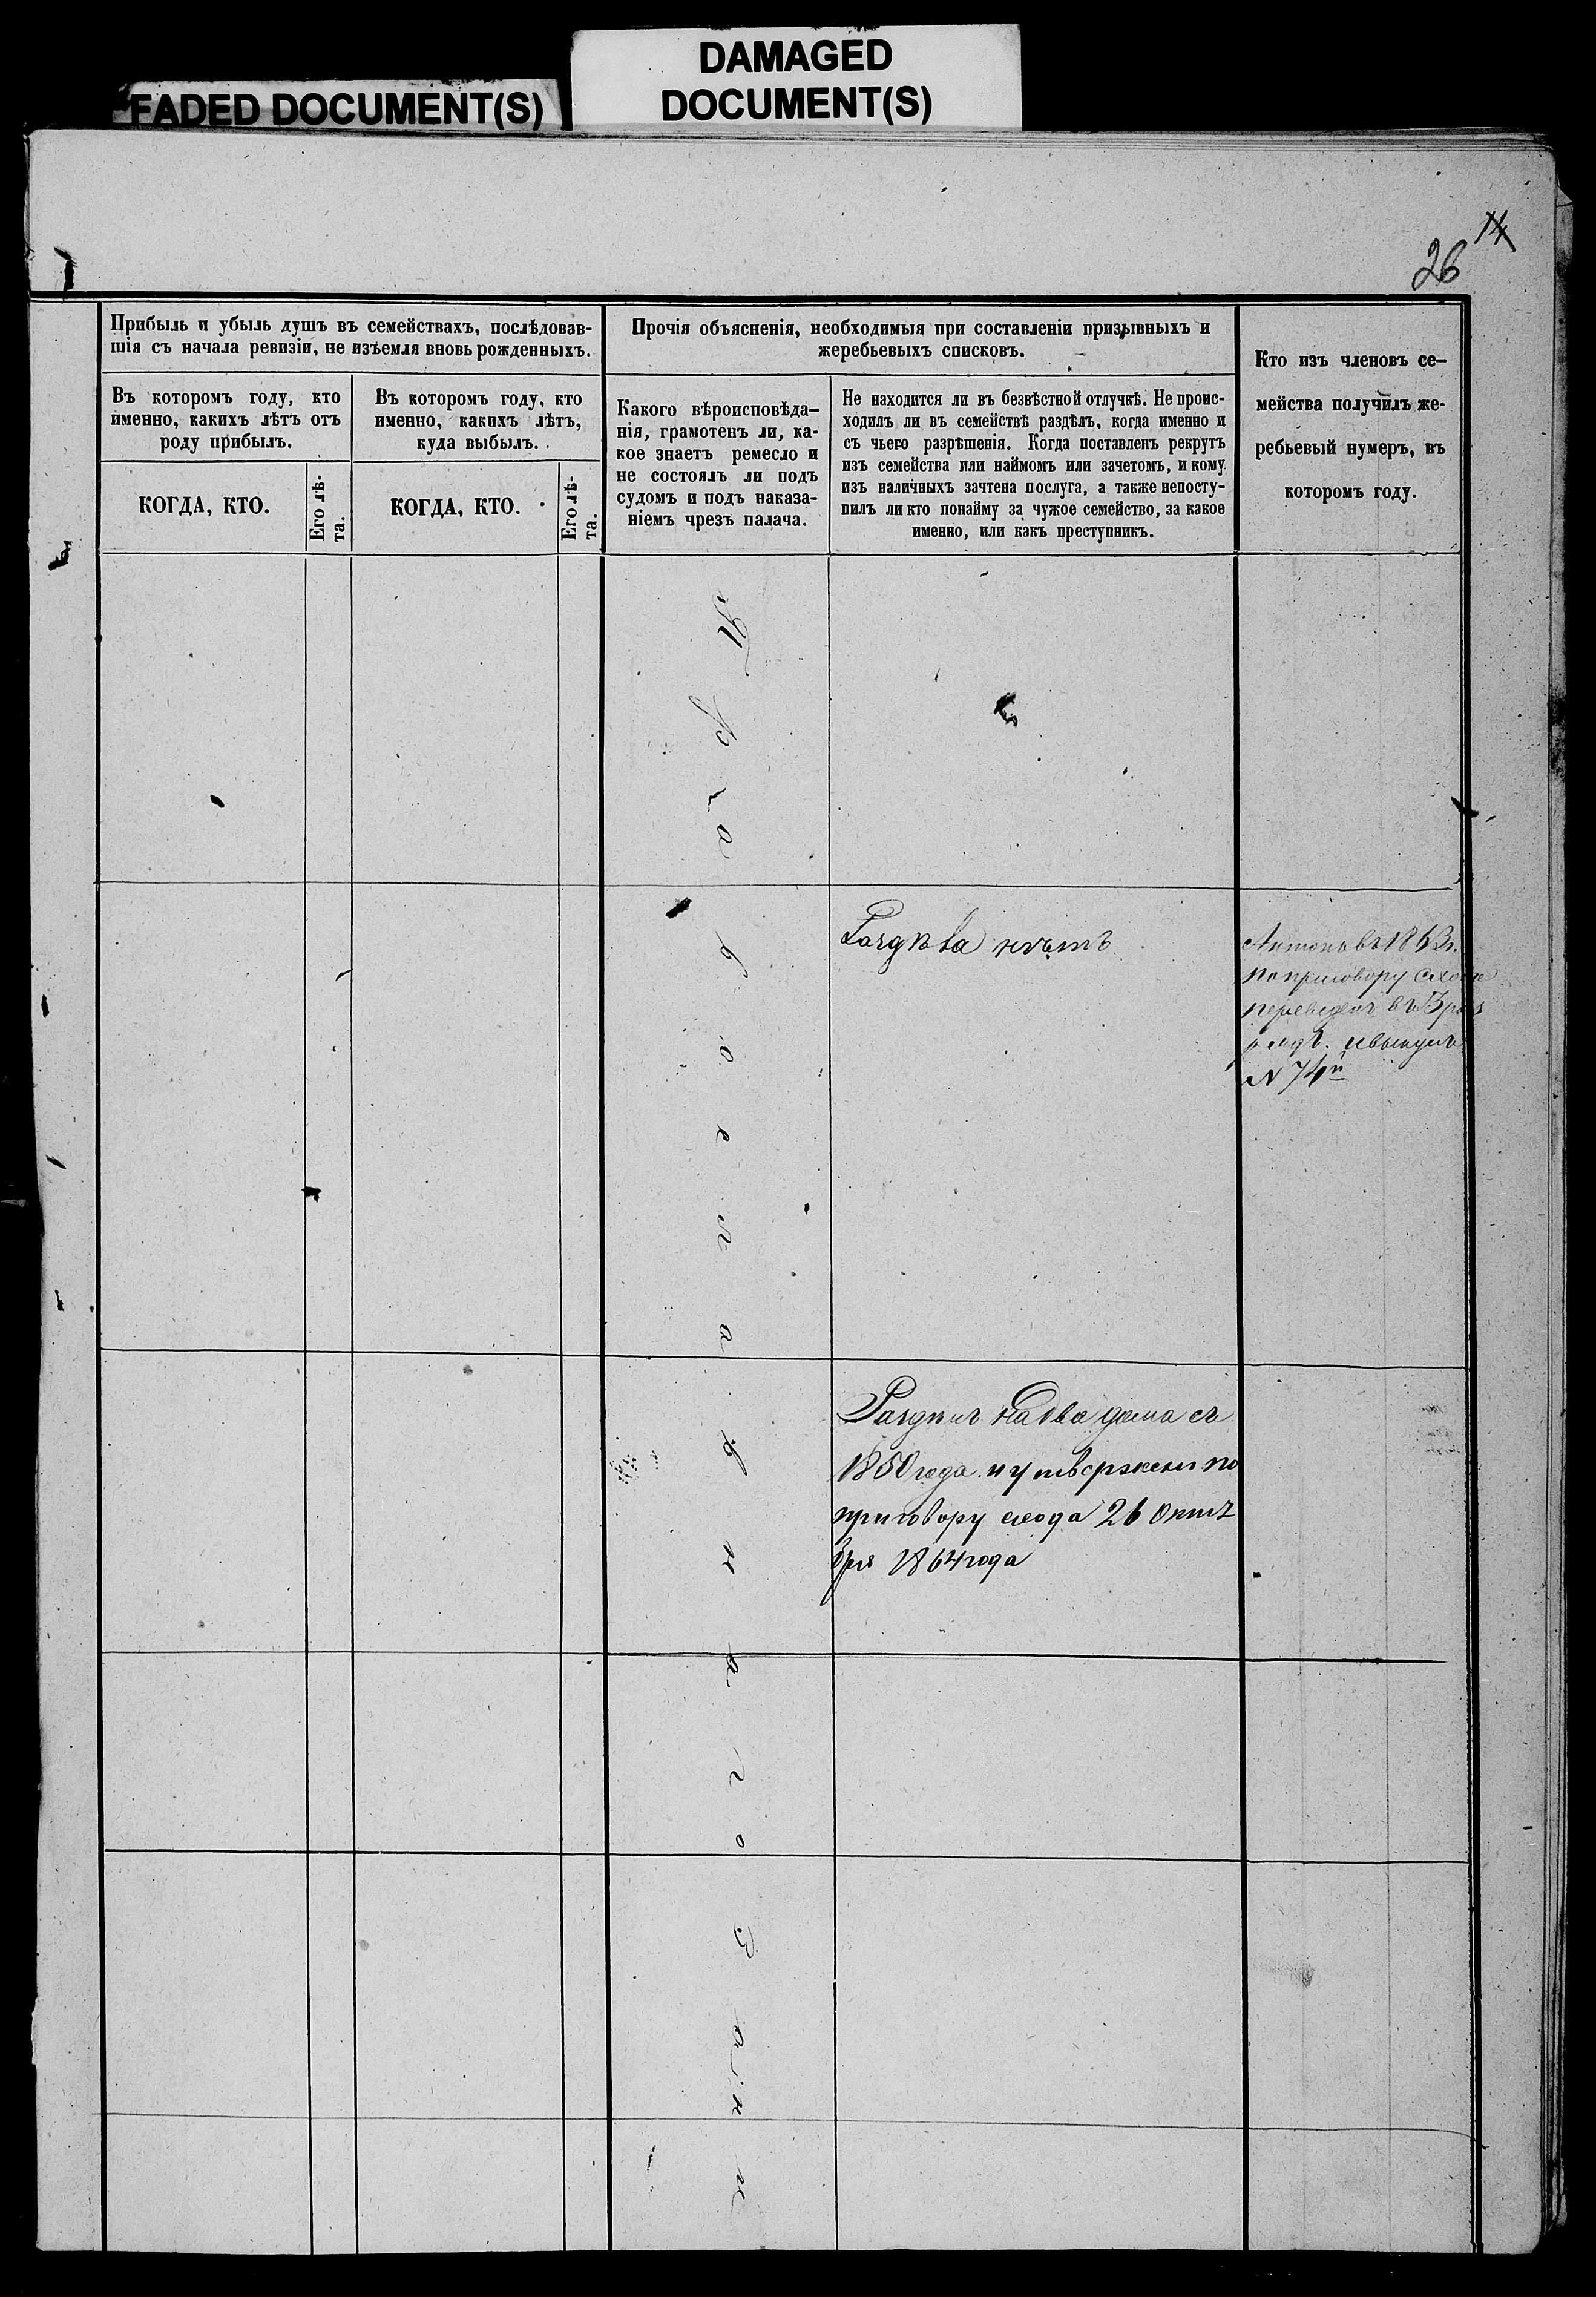 FADED DOCUMENT(S)
DAMAGED
DOCUMENT(S)
14
26
Прибыль и убыль душъ въ семействахъ, послѣдовав-
шія съ начала ревизіи, не изъемля вновь рожденныхъ.
Въ которомъ году, кто
именно, какихъ лѣтъ отъ
роду прибылъ.
КОГДА, КТО.
Его лѣ-
та.
Въ которомъ году, кто
именно, какихъ лѣтъ,
куда выбылъ.
КОГДА, КТО.
Его лѣ-
та.
Прочія объясненія, необходимыя при составленіи призывныхъ и
жеребьевыхъ списковъ.
Какого вѣроисповѣда-
нія, грамотенъ ли, ка-
кое знаетъ ремесло и
не состоялъ ли подъ
судомъ и подъ наказа-
ніемъ чрезъ палача.
Не находится ли въ безвѣстной отлучкѣ. Не проис-
ходилъ ли въ семействѣ раздѣлъ, когда именно и
съ чьего разрѣшенія. Когда поставленъ рекрутъ
изъ семейства или наймомъ или зачетомъ, и кому
изъ наличныхъ зачтена послуга, а также непосту-
пилъ ли кто понайму за чужое семейство, за какое
именно, или какъ преступникъ.
Кто изъ членовъ се-
мейства получилъ же-
ребьевый нумеръ, въ
которомъ году.
Православнаго
Раздѣла нѣтъ
Антонъ въ 1863г.
по приговору схода
переведенъ въ 3
разрядъ. и вынулъ
N 74й
Раздѣлъ на два дома съ
1850 года и утвержденъ по
приговору схода 26 октя
бря 1864 года